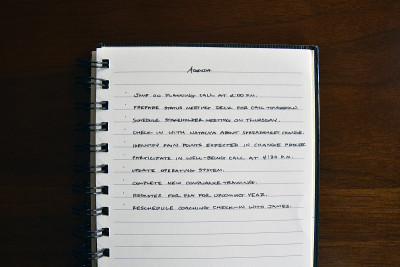 AGENDA
· JUMP ON PLANNING CALL AT 2:00 P.M.
· PREPARE STATUS MEETING DECK FOR CALL TOMORROW.
· SCHEDULE STAKEHOLDER MEETING ON THURSDAY.
· CHECK-IN WITH NATALIYA ABOUT SPREADSHEET CHANGE.
· IDENTIFY PAIN POINTS EXPECTED IN CHANGE PROCESS.
· PARTICIPATE IN WELL-BEING CALL AT 4:30 P.M.
· UPDATE OPERATING SYSTEM.
· COMPLETE NEW COMPLIANCE TRAINING.
· REGISTER FOR FSA FOR UPCOMING YEAR.
· RESCHEDULE COACHING CHECK-IN WITH JAMES.